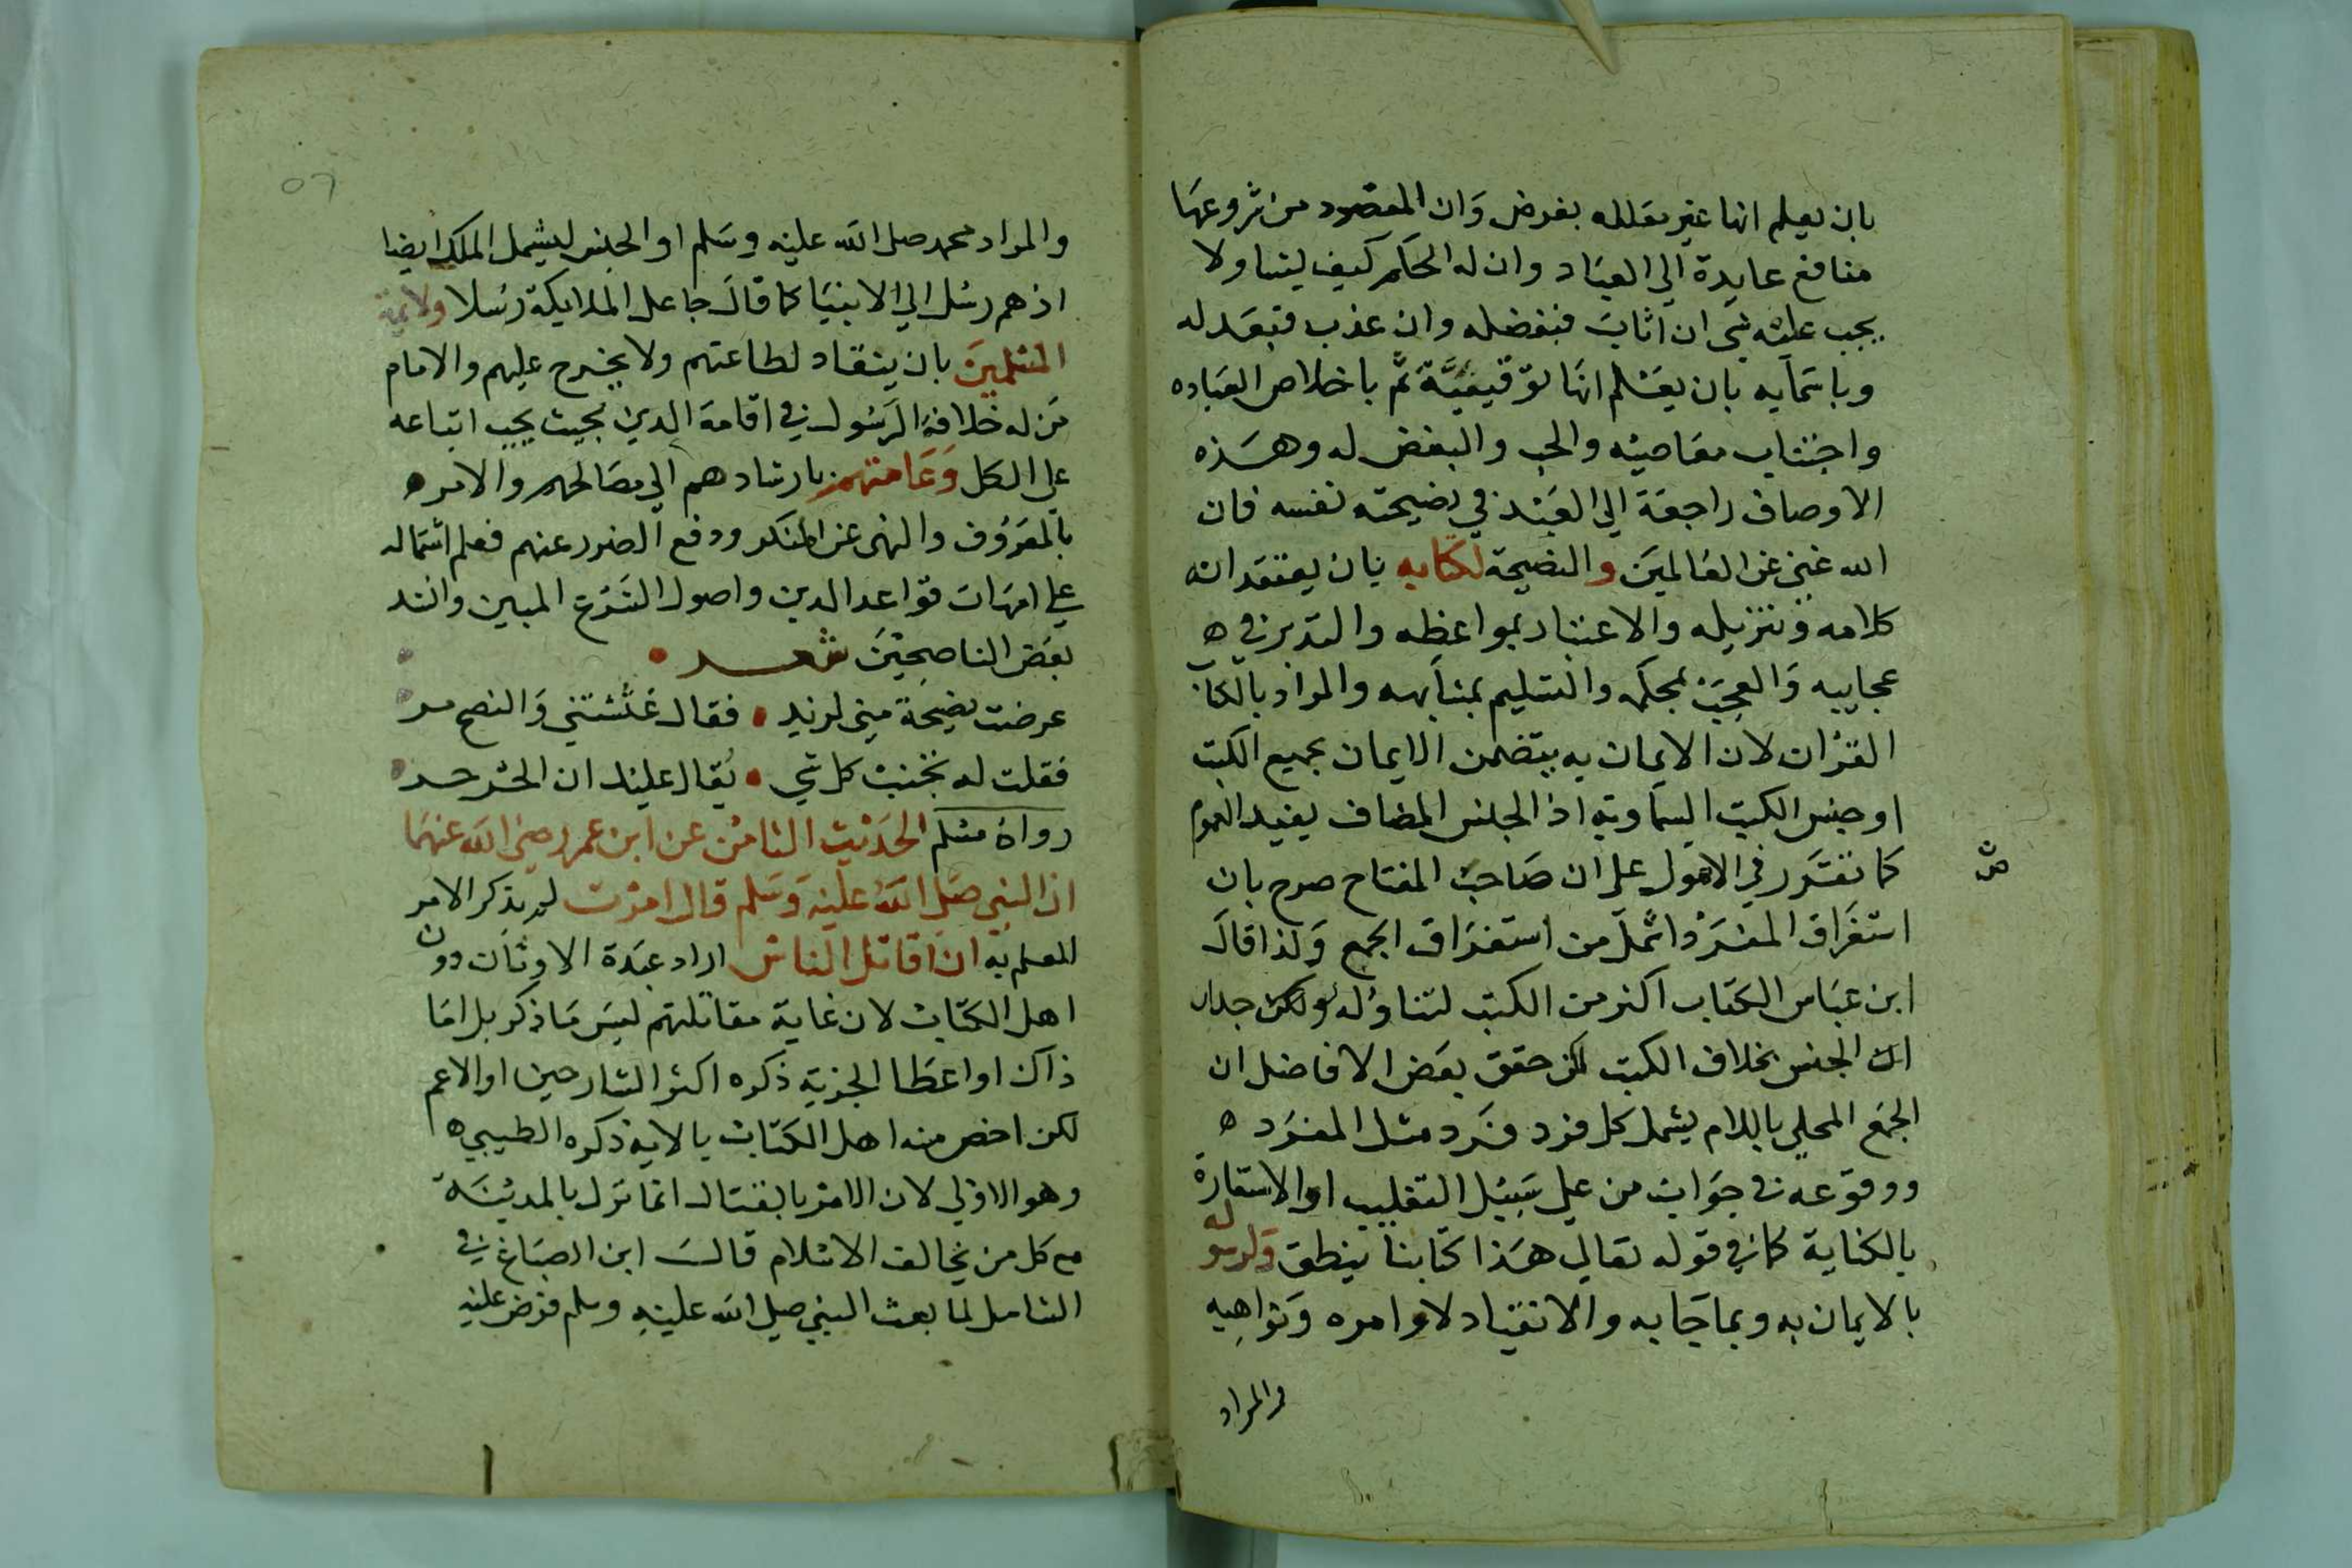 بان يعلم انها غير معلله بغرض وان المقصود من شروعها
منافع عايدة الي العباد وان له الحكم كيف يشا ولا
يجب عليه شي ان اثاب فبفضله وان عذب فبعدله
وباسمآيه بان يعلم انها توقيفية ثم باخلاص العباده
واجتناب معاصيه والحب والبغض له وهذه
الاوصاف راجعة الي العبد في نصيحته نفسه فان
الله غني عن العالمين والنصيحة لكتابه بان يعتقد انه
كلامه وتنزيله والاعتبار بمواعظه والتدبر في ه
عجايبه والعمل بمحكمه والتسليم بمتشابهه والمراد بالكتاب
القران لان الايمان به يتضمن الايمان بجميع الكتب
او جنس الكتب السماوية اذ الجنس المضاف يفيد العموم
كما تقرر في الاصول على ان صاحب المفتاح صرح بان
استغراق المفرد اشمل من استغراق الجمع ولذا قال
ابن عباس الكتاب اكثر من الكتب لتناوله جدان
الجنس بخلاف الكتب لكن حقق بعض الافاضل ان
الجمع المحلي باللام يشمل كل فرد فرد مثل المفرد ه
ووقوعه في جواب من علي سبيل التغليب او الاستعارة
بالكناية كما في قوله تعالي هذا كتابنا ينطق ولرسوله
بالايمان به وبما جا به والانقياد لاوامره ونواهيه
والمراد
ص
٥٦
والمراد محمد صلى الله عليه وسلم او الجنس ليشمل الملك ايضا
اذ هم رسل الي الانبيا كما قال جاعل الملايكة رسلا ولايمة
المسلمين بان ينقاد لطاعتهم ولا يخرج عليهم والامام
من له خلافة الرسول في اقامة الدين بحيث يجب اتباعه
علي الكل وعامتهم بارشادهم الي مصالحهم والامر ه
بالمعروف والنهي عن المنكر ودفع الضرر عنهم فعلم اشتماله
علي امهات قواعد الدين واصول الشرع المبين وانشد
بعض الناصحين شعر
عرضت نصيحة مني لزيد فقال غششتني والنصح مر
فقلت له تجنب كل شي يقال عليك ان الحر حر
رواه مسلم الحديث الثامن عن ابن عمر رضي الله عنهما
ان النبي صلى الله عليه وسلم قال امرت لم يذكر الامر
للعلم به ان اقاتل الناس اراد عبدة الاوثان دون
اهل الكتاب لان غاية مقاتلتهم ليس ما ذكر بل اما
ذاك او اعطا الجزية ذكره اكثر الشارحين او الاعم
لكن اخص منه اهل الكتاب بالاية ذكره الطيبي ه
وهو الاولي لان الامر بالقتال انما نزل بالمدينة
مع كل من يخالف الاسلام قال ابن الصباغ في
الشامل لما بعث النبي صلي الله عليه وسلم فرض عليه